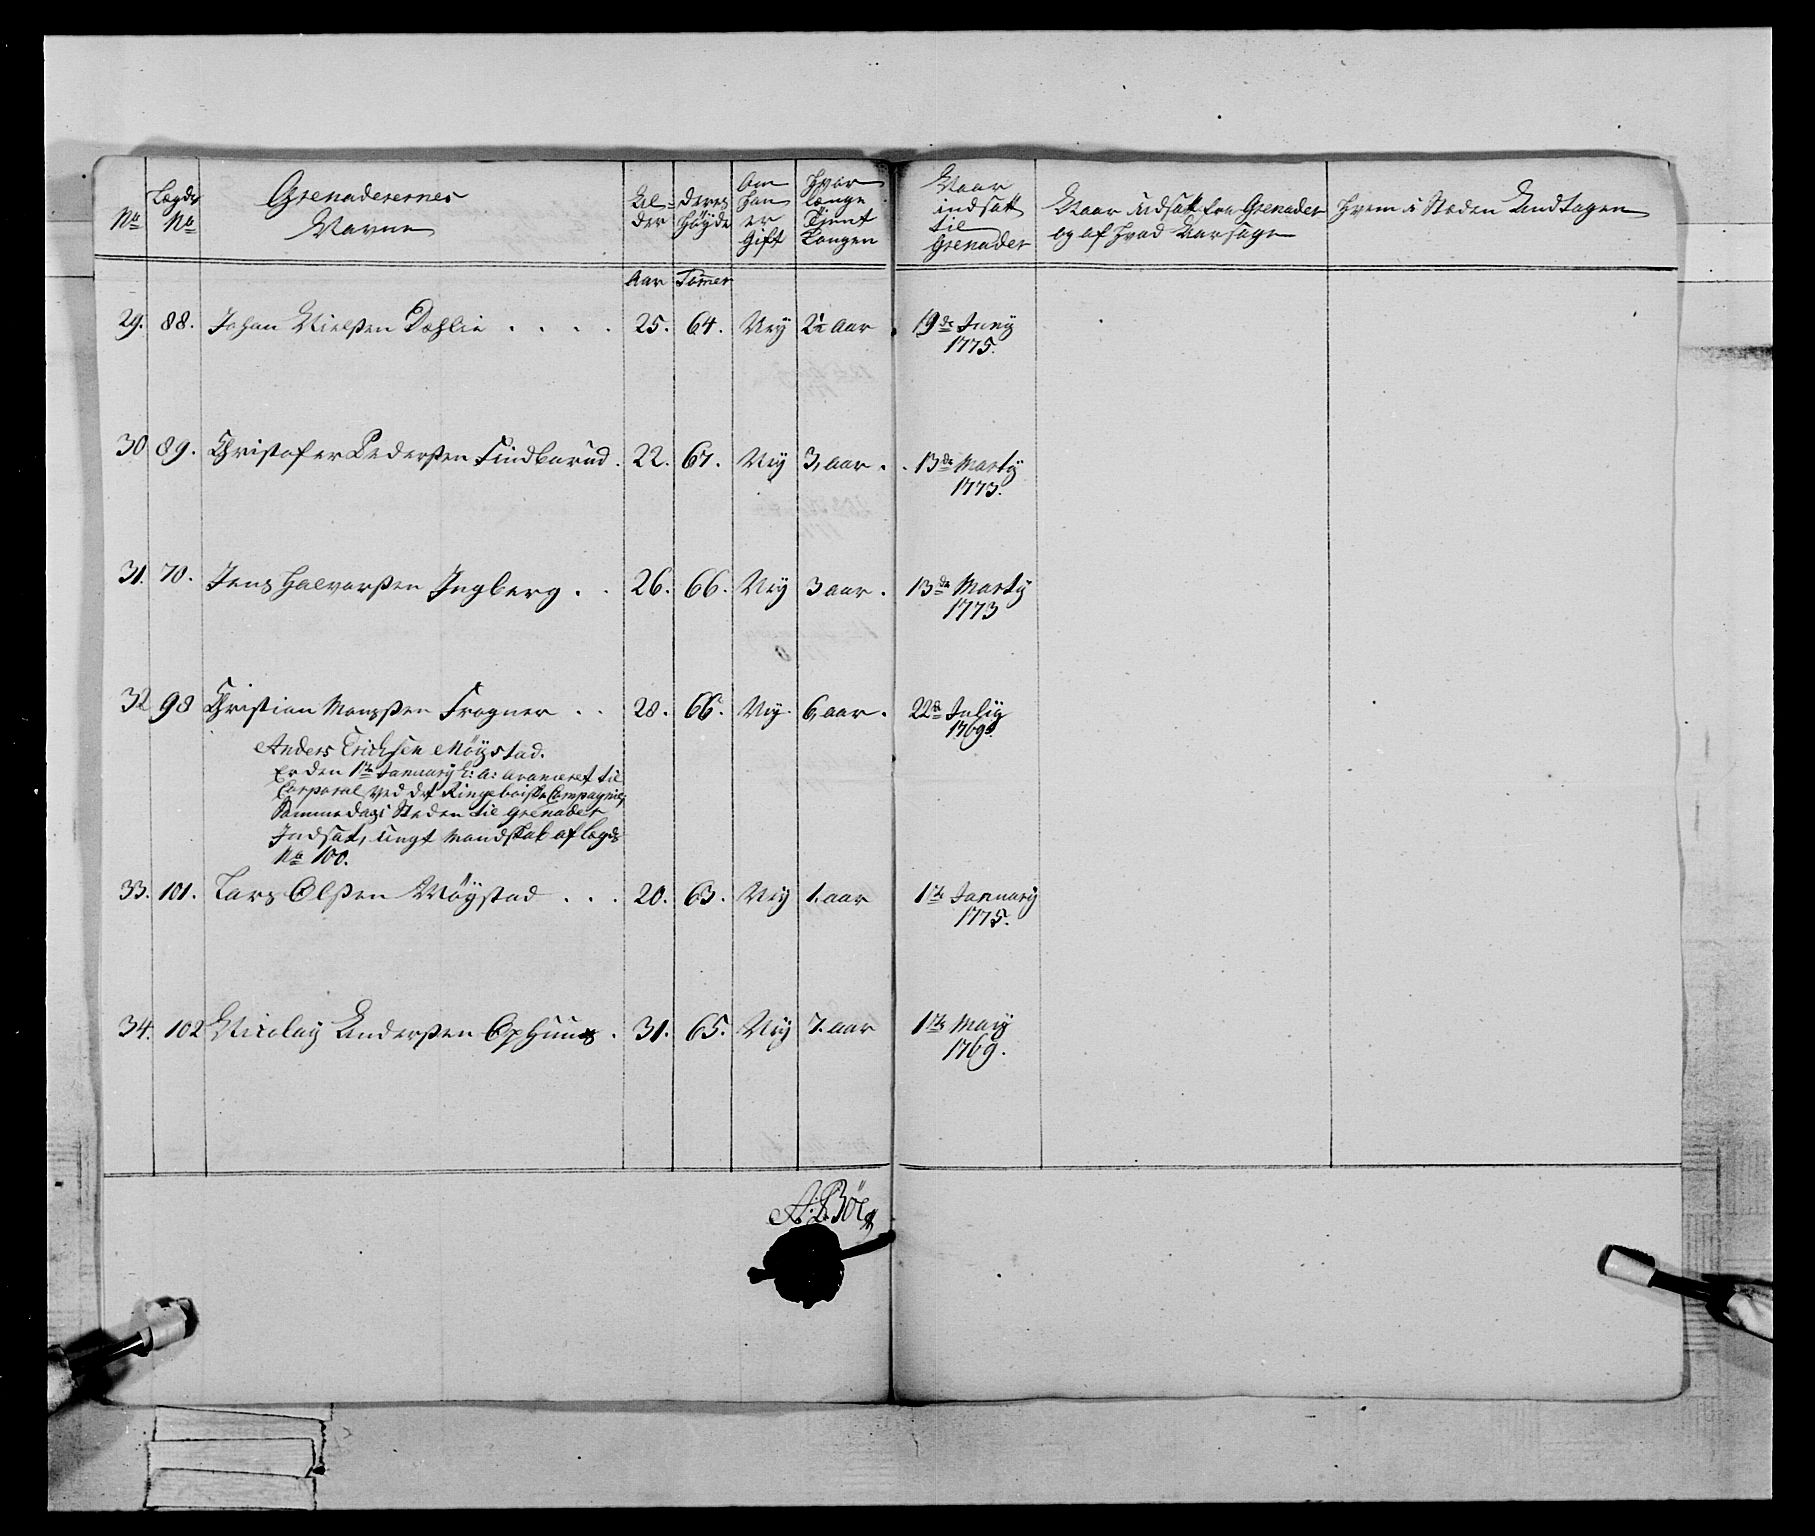 No
Lægds No
Grenaderernes Navne
Al- der
Deres Høyde
Om han er Gift
Hvor længe Tient Kongen
Naar indsatt til Grenader
Naar Udsatt fra Grenader og af hvad Aarsage
Hvem i Stæden Andtagen
Aar Tomer
29. 88. Johan Nielsen Dahlie . . . . 25. 64. Ney 2½ Aar 19de Juny 1775.
30 89. Christofer Pedersen Findbarud. 22. 67. Ney 3, aar. 13de Marty 1773.
31. 70. Jens Halvorsen Jngberg . . 26. 66. Ney 3 aar. 13de Marty 1773
32 98 Christian Monssen Frogner . . 28. 66. Ney. 6, aar. 22de July 1769.
Anders Ericksen Møystad.
Er den 1te January h: a: avanceret til
Corporal ved det Ringeboiske Compagnie,
Samme dag i Steden til Grenader
Indsat, ungt Mandskab af Lægds
No 100.
33. 101. Lars Olsen Møystad . . . 20. 63. Ney 1. aar 1te January 1775.
34. 102 Nicolay Andersen Ophuus . 31. 65. Ney 7. aar 1te May 1769.